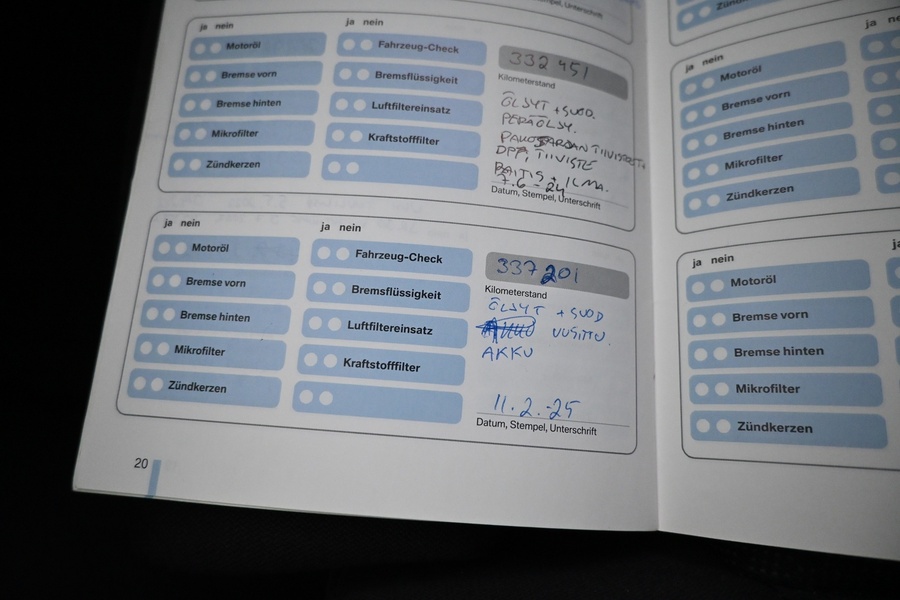 Stempel, Unterschrift
ja nein
ja nein
Motoröl
Fahrzeug-Check
332 451
Bremse vorn
Bremsflüssigkeit
Kilometerstand
Bremse hinten
Luftfiltereinsatz
ÖLSYT + SUOD.
PERÄÖLSY.
Mikrofilter
Kraftstofffilter
DPF, TIIVISTE
Zündkerzen
RAITIS + ILMA.
7.6 - 24
Datum, Stempel, Unterschrift
ja nein
ja nein
Motoröl
Fahrzeug-Check
337 201
Bremse vorn
Bremsflüssigkeit
Kilometerstand
Bremse hinten
Luftfiltereinsatz
ÖLSYT + SUOD
UUSITTU.
Mikrofilter
Kraftstofffilter
AKKU
Zündkerzen
11.2.-25
Datum, Stempel, Unterschrift
20
ja nein
ja
Motoröl
Bremse vorn
Bremse hinten
Mikrofilter
Zündkerzen
ja nein
Motoröl
Bremse vorn
Bremse hinten
Mikrofilter
Zündkerzen